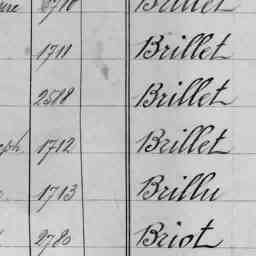 Brillet
1711 Brillet
2518 Brillet
eph 1712 Brillet
1713 Brillu
2780 Briot